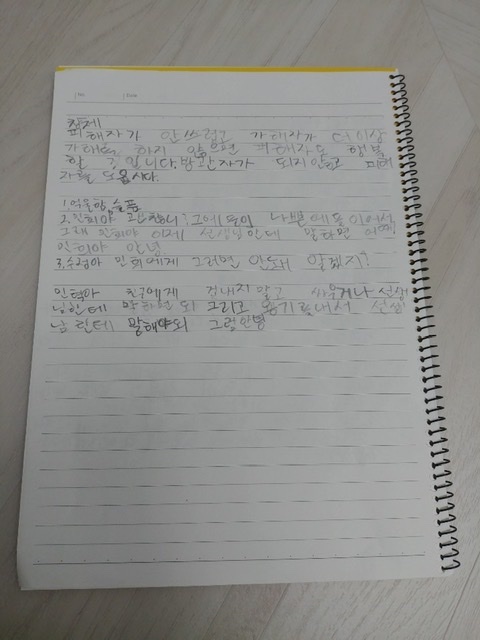 No.
Date
피해자가 안쓰럽고 가해자가 더이상
가해를 하지 않으면 피해자도 행복
할 것입니다. 방관자가 되지 안고 피해
자를 도웁시다.
1. 억울함, 슬픔
2. 민희야 괜찮니? 그애들이 나쁠 애들이어서
그래 민희야 이제 선생님한테 말하면 어때
민희야 안녕
3. 수정아 민희에게 그러면 안돼 알겠지?
민혁아 친구에게 겁내지 말고 싸우거나 선생
님한테 말하면 되 그리고 용기를 내서 선생
님 한테 말해야되 그럼 안녕